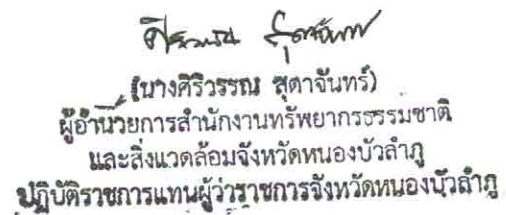 (นางศิริวรรณ สุดาจันทร์)
ผู้อำนวยการสำนักงานทรัพยากรธรรมชาติ
และสิ่งแวดล้อมจังหวัดหนองบัวลำภู
ปฏิบัติราชการแทนผู้ว่าราชการจังหวัดหนองบัวลำภู